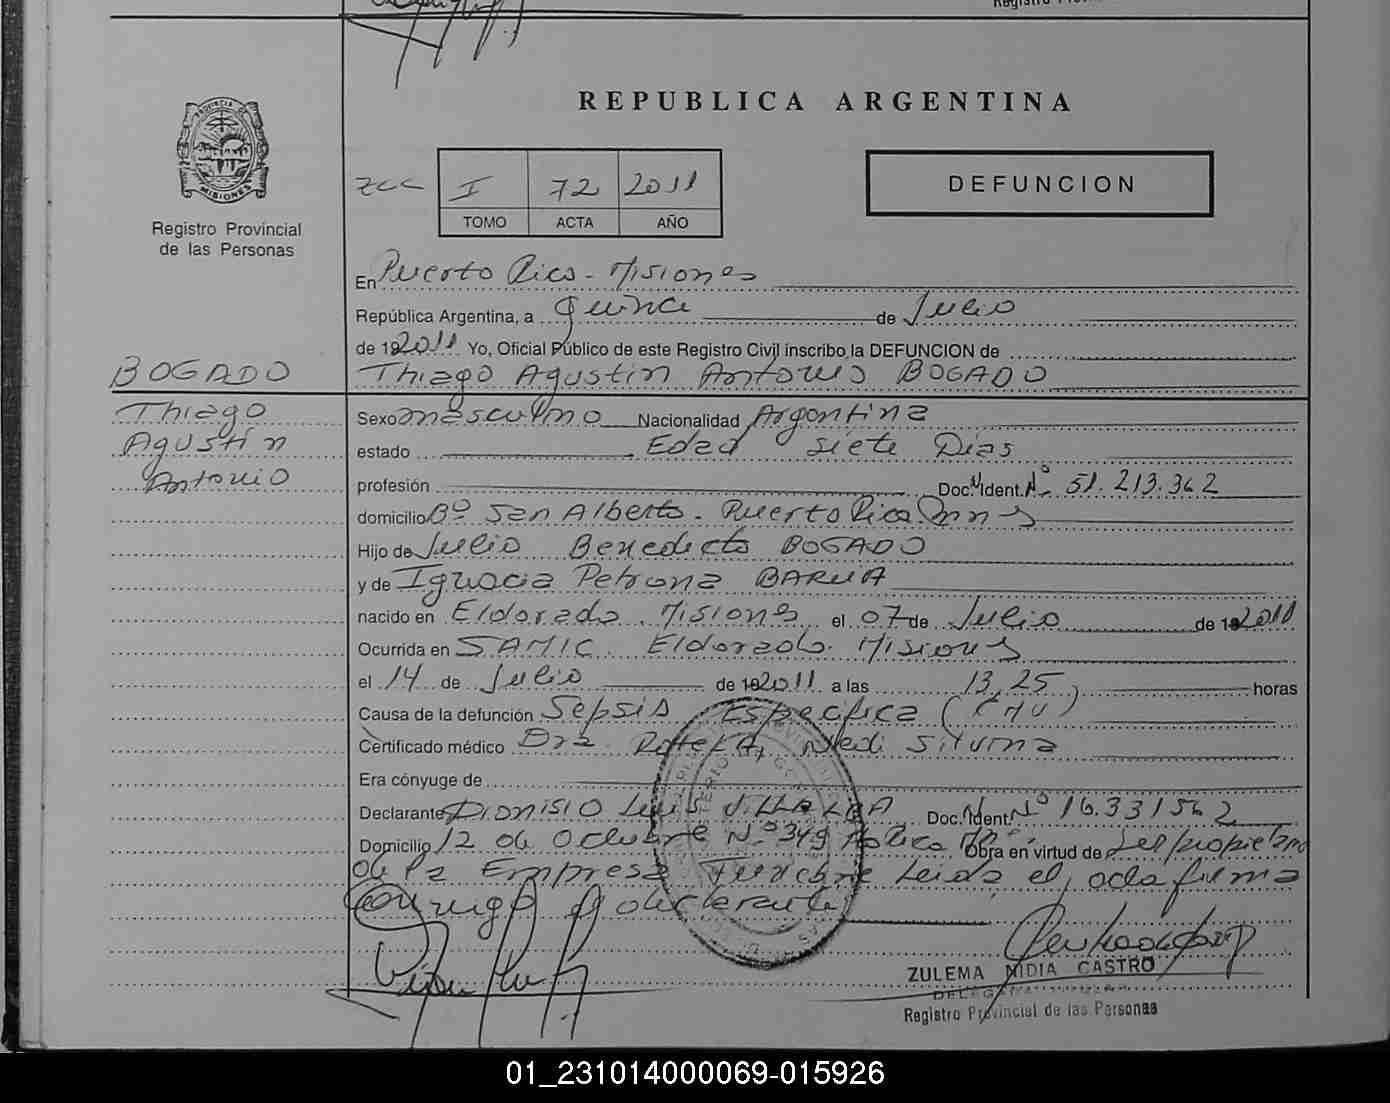 Registro
PROVINCIA DE
MISIONES
Registro Provincial
de las Personas
REPUBLICA ARGENTINA
I 72 2011
TOMO ACTA AÑO
DEFUNCION
En Puerto Rico - Misiones
República Argentina, a quince de Julio
de 192011 Yo, Oficial Público de este Registro Civil inscribo la DEFUNCION de
BOGADO Thiago Agustin Antonio BOGADO
Thiago Sexo masculino Nacionalidad Argentina
Agustin estado Edad Siete Dias
Antonio profesión Doc. Ident. Nº 51.213.362
domicilio Bº San Alberto - Puerto Rico Mnes
Hijo de Julio Benedicto BOGADO
y de Ignacia Petrona BARUA
nacido en Eldorado Misiones el 07 de Julio de 192011
Ocurrida en SAMIC Eldorado Misiones
el 14 de Julio de 192011 a las 13,25 horas
Causa de la defunción Sepsis Especifica
Certificado médico Dra. Silvina
Era cónyuge de
Declarante Dionisio Luis VILLALBA Doc. Ident. Nº 16.331562
Domicilio 12 de Octubre Nº 349 Obra en virtud de ser propietario
de la Empresa Funebre Leida el acta firma
conmigo el declarante
ZULEMA NIDIA CASTRO
DELEGADA
Registro Provincial de las Personas
01_231014000069-015926